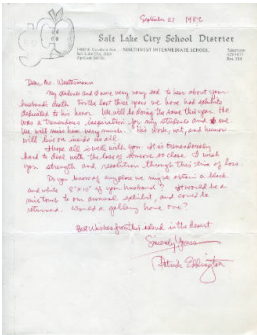 September 21 1982
Salt Lake City School District
NORTHWEST INTERMEDIATE SCHOOL
Dear Mrs. Westermann
My students and I were very very sad to hear about your
husbands death. For the last three years we have had exhibits
dedicated to his honor. We will be doing the same this year. He
was a tremendous inspiration for my students and we
will miss him very much. His work, wit, and humor
will live on inside us all.
Hope all is well with you. It is tremendously
hard to deal with the loss of someone so close. I wish
you strength and resolution through this time of loss.
Do you know of anyplace we might obtain a black
and white 8"x10" of your husband? It would be a
plus to our annual exhibit, and could be
returned. Would a gallery have one?
Best wishes from this island in the desert
Sincerely Yours
Patrick Eddington